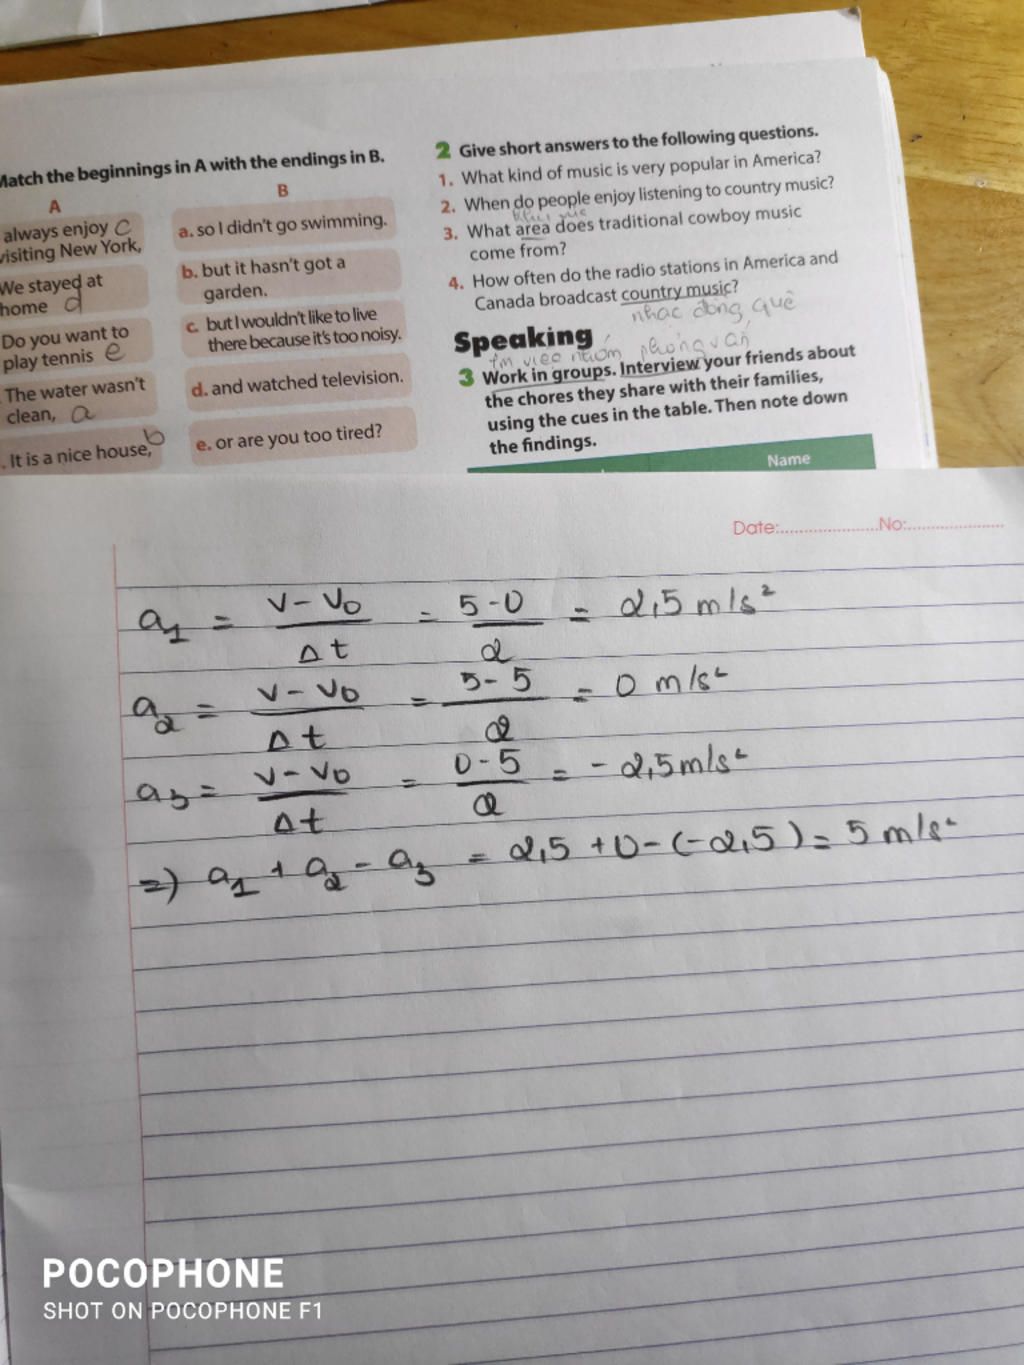 Match the beginnings in A with the endings in B.
A
B
always enjoy c
visiting New York,
We stayed at
home d
Do you want to
play tennis e
The water wasn't
clean, a
. It is a nice house, b
a. so I didn't go swimming.
b. but it hasn't got a
garden.
c. but I wouldn't like to live
there because it's too noisy.
d. and watched television.
e. or are you too tired?
2 Give short answers to the following questions.
1. What kind of music is very popular in America?
2. When do people enjoy listening to country music?
3. What area does traditional cowboy music
come from?
4. How often do the radio stations in America and
Canada broadcast country music?
nhạc đồng quê
Speaking
làm việc nhóm phỏng vấn
3 Work in groups. Interview your friends about
the chores they share with their families,
using the cues in the table. Then note down
the findings.
Name
Date:....................No:....................
a₁ = v - v₀ / Δt = 5 - 0 / 2 = 2,5 m/s²
a₂ = v - v₀ / Δt = 5 - 5 / 2 = 0 m/s²
a₃ = v - v₀ / Δt = 0 - 5 / 2 = - 2,5 m/s²
=) a₁ + a₂ - a₃ = 2,5 + 0 - (-2,5) = 5 m/s²
POCOPHONE
SHOT ON POCOPHONE F1